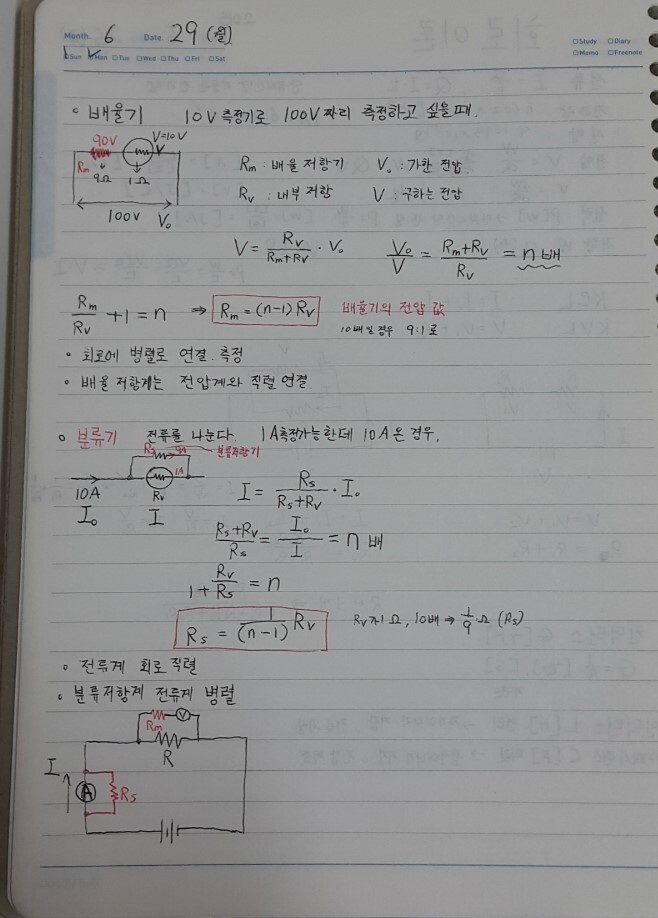 Month. 6 Date. 29 (월)
□Sun □Mon □Tue □Wed □Thu □Fri □Sat
□Study □Diary
□Memo □Freenote
◦ 배율기 10V 측정기로 100V 짜리 측정하고 싶을때.
90V V=10V
Rm 9Ω 1Ω
100V V₀
Rm : 배율 저항기 V₀ : 가한 전압
Rv : 내부 저항 V : 구하는 전압
V = Rv/(Rm+Rv) · V₀ V₀/V = (Rm+Rv)/Rv = n 배
Rm/Rv + 1 = n ⇒ Rm = (n-1) Rv 배율기의 전압 값
10배일 경우 9:1로
◦ 회로에 병렬로 연결. 측정
◦ 배율 저항계는 전압계와 직렬 연결.
◦ 분류기 전류를 나눈다. 1A측정가능한데 10A 온 경우,
Rs 9A 분류저항기
1A
10A Rv
I₀ I
I = Rs/(Rs+Rv) · I₀
(Rs+Rv)/Rs = I₀/I = n 배
1 + Rv/Rs = n
Rs = 1/(n-1) Rv Rv가 1Ω, 10배 → 1/9 Ω (Rs)
◦ 전류계 회로 직렬
◦ 분류저항계 전류계 병렬
Rm V
R
I A Rs